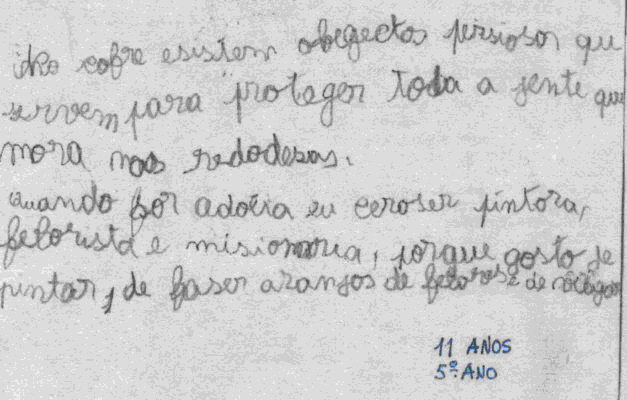 no cofre esistem obegectos persiosos que
servem para protager toda a jente que
mora nas redodesas.
Quando for adoéra eu ceroser pintora,
felorista e misionaria, porque gosto de
pintar, de faser aranjos de felores e de
11 ANOS
5º ANO